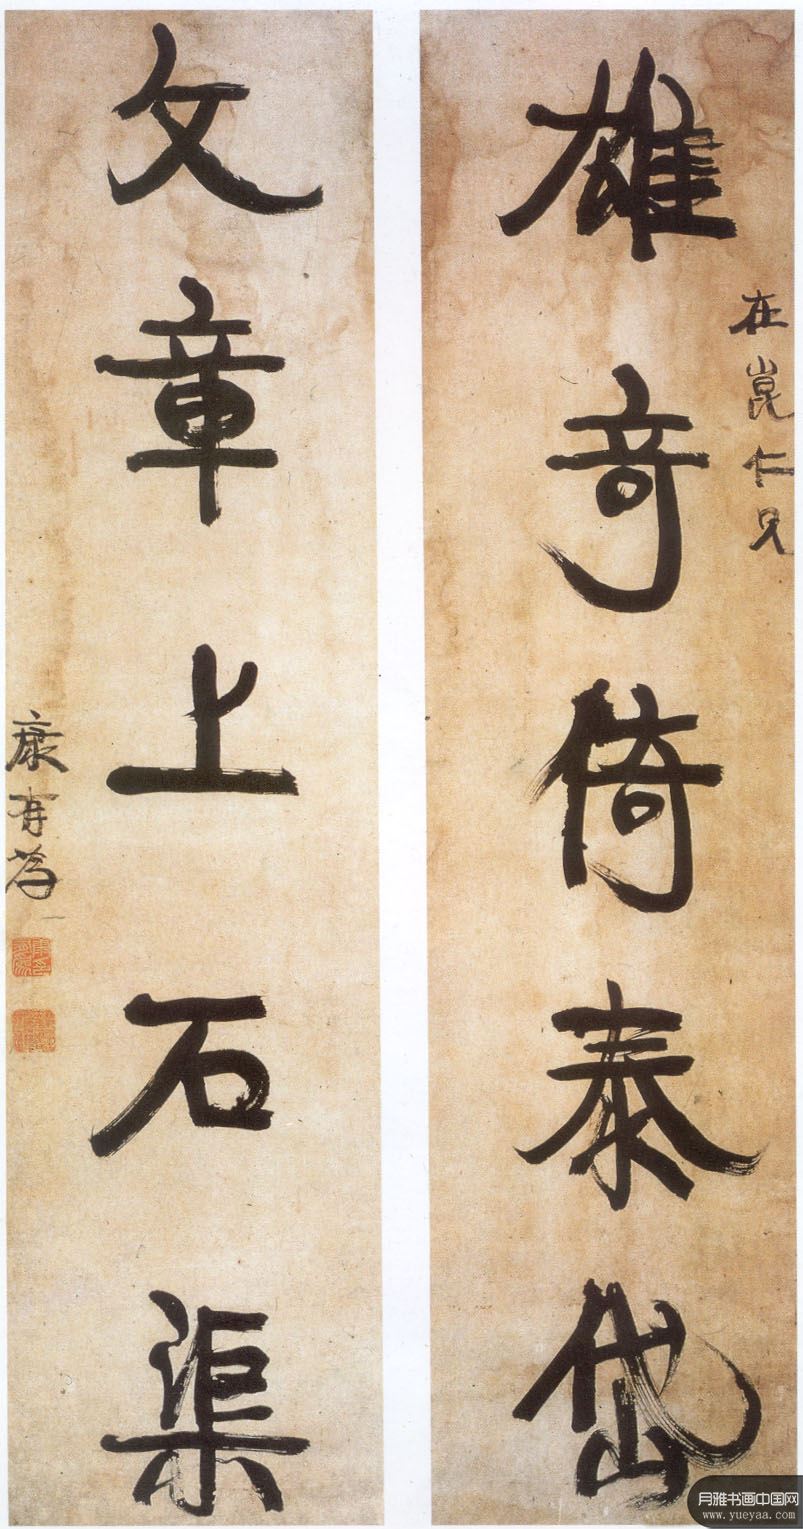 在崑仁兄
雄奇倚泰岱
文章上石渠
康有為
月雅书画中国网
www.yueyaa.com